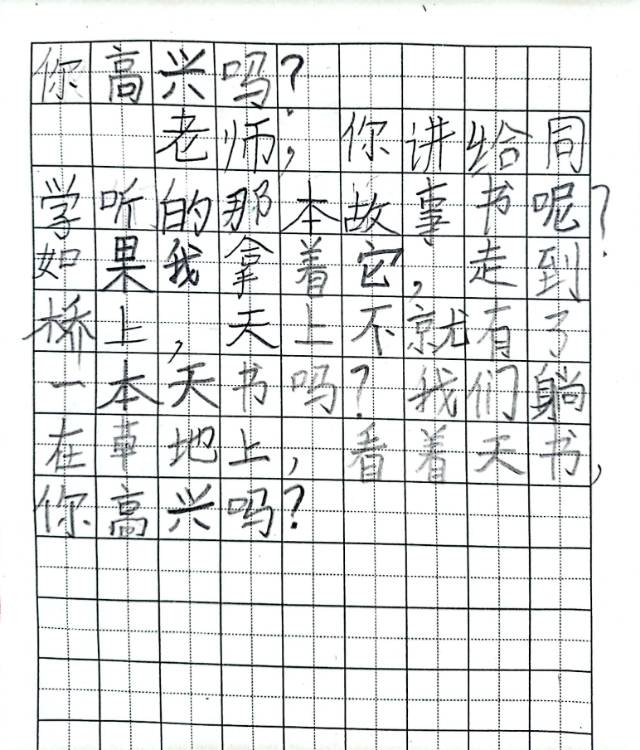 你高兴吗？
老师，你讲给同
学听的那本故事书呢？
如果我拿着它，走到
桥上，天上不就有了
一本天书吗？我们躺
在草地上，看着天书，
你高兴吗？